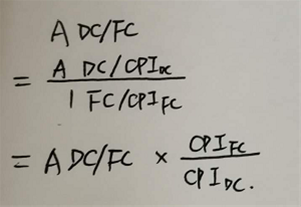 A DC/FC
= A DC/CPI_DC
1 FC/CPI_FC
= A DC/FC × CPI_FC
CPI_DC.